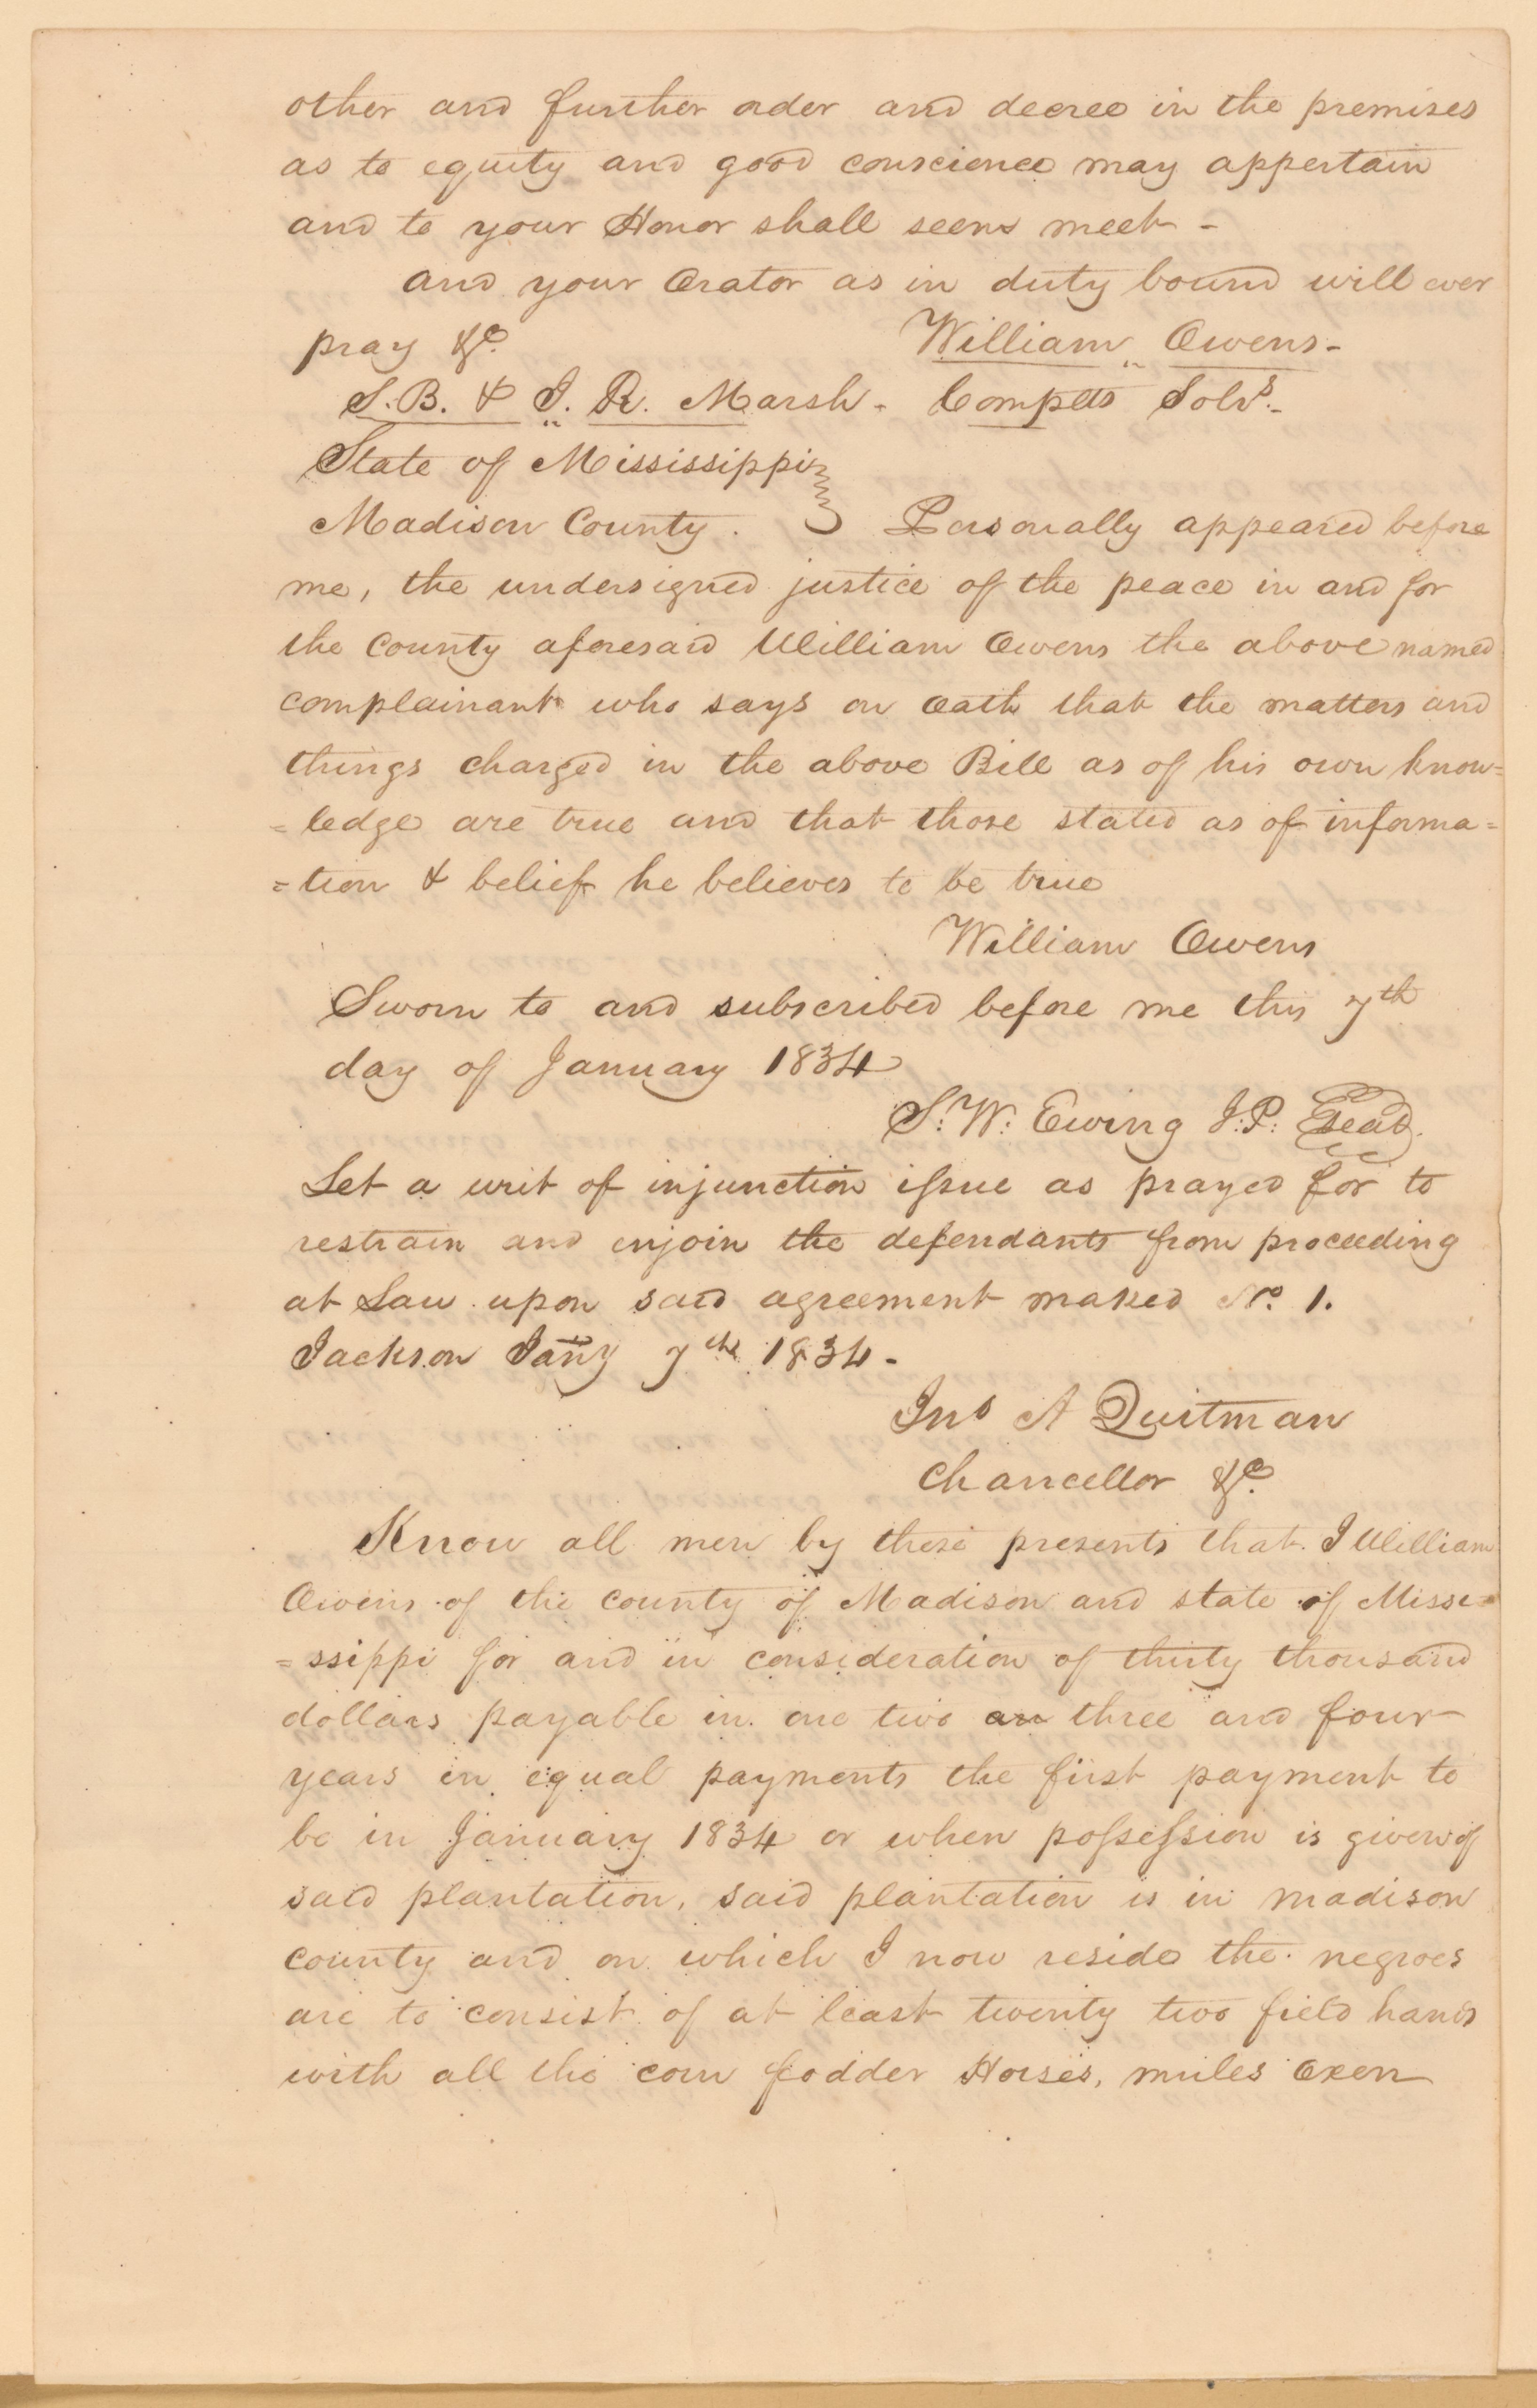 other and further order and decree in the premises
as to equity and good conscience may appertain
and to your Honor shall seem meet -
and your Orator as in duty bound will ever
pray &c. William Owens -
S. B. & J. R. Marsh - Complts Solrs. -
State of Mississippi
Madison County. Personally appeared before
me, the undersigned justice of the peace in and for
the County aforesaid William Owens the above named
complainant who says on oath that the matters and
things charged in the above Bill as of his own know=
=ledge are true and that those stated as of informa=
=tion & belief he believes to be true
William Owens
Sworn to and subscribed before me this 7th
day of January 1834
S. W. Ewing J.P. Seal
Let a writ of injunction issue as prayed for to
restrain and enjoin the defendants from proceeding
at Law upon said agreement maked No. 1.
Jackson Jany 7th 1834 -
Jno A Quitman
Chancellor &c.
Know all men by these presents that I William
Owens of the county of Madison and state of Missi=
=ssippi for and in consideration of thirty thousand
dollars payable in one two an three and four
years in equal payments the first payment to
be in January 1834 or when possession is given of
said plantation, said plantation is in Madison
county and on which I now reside the negroes
are to consist of at least twenty two field hands
with all the corn fodder Horses, mules Oxen